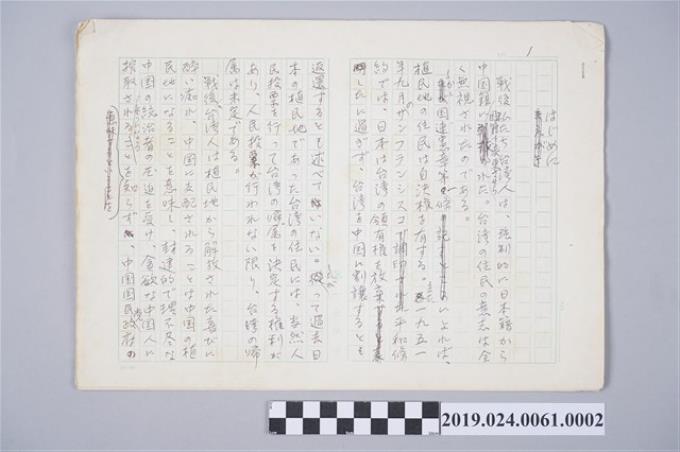 1
はじめに
戦後私たち台湾人は、強制的に日本籍から
中国籍に
された。台湾の住民の意志は全
く無視されたのである。
国連憲章第一條
によれば、
植民地の住民は自決権を有する。又一九五一
年九月のサンフランシスコ
平和條
約では、日本は台湾の領有権を放棄
したに過ぎず、台湾を中国に割譲するとも
返還するとも述べていない。従って過去日
本の植民地であった台湾の住民には、当然人
民投票を行って台湾の帰属を決定する権利が
あり、人民投票が行われない限り、台湾の帰
属は未定である。
戦後台湾人は植民地から解放された喜びに
酔い流れ、中国に支配されることは中国の植
民地になることを意味し、封建的で理不尽な
中国の統治者の圧迫を受け、貪欲な中国人に
搾取されることを知らず、中国国民政府の
2019.024.0061.0002